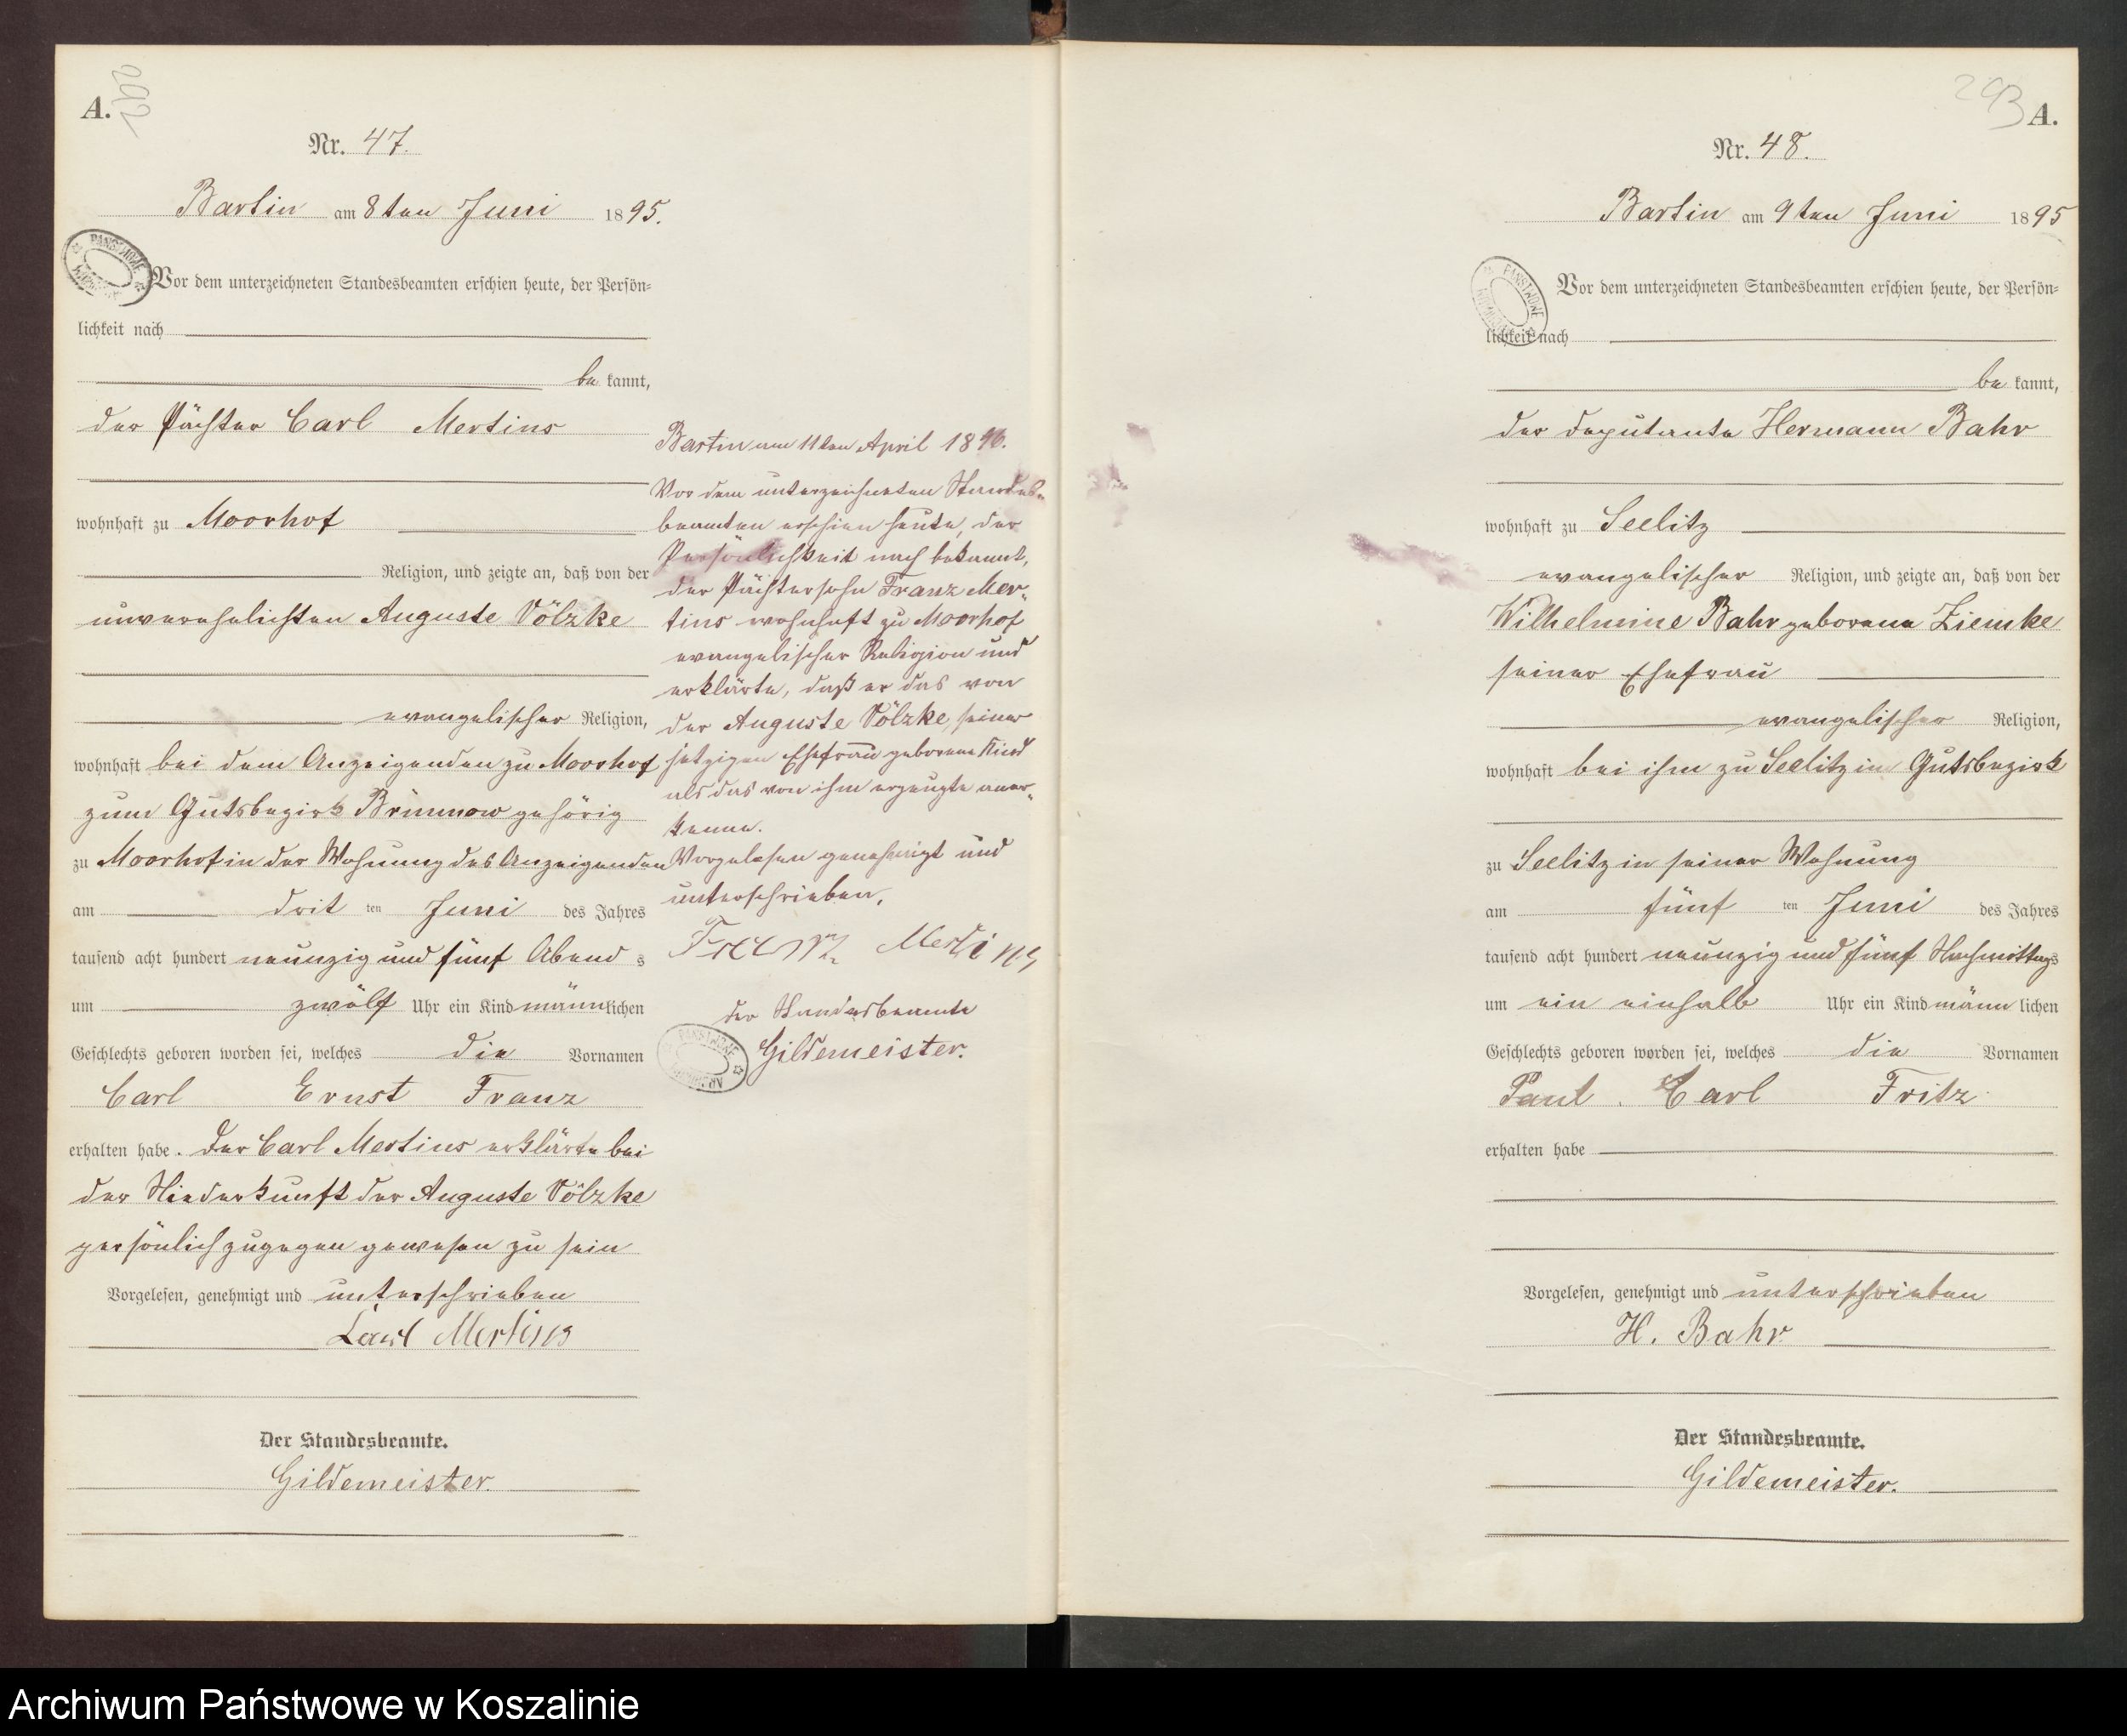 A.
292
Nr. 47.
Bartin am 8ten Juni 1895.
Vor dem unterzeichneten Standesbeamten erschien heute, der Persön=
lichkeit nach
be kannt,
der Pächter Carl Mertins
wohnhaft zu Moorhof
Religion, und zeigte an, daß von der
unverehelichten Auguste Völzke
evangelischer Religion,
wohnhaft bei dem Anzeigenden zu Moorhof
zum Gutsbezirk Brünnow gehörig
zu Moorhof in der Wohnung des Anzeigenden
am drit ten Juni des Jahres
tausend acht hundert neunzig und fünf Abend s
um zwölf Uhr ein Kind männlichen
Geschlechts geboren worden sei, welches die Vornamen
Carl Ernst Franz
erhalten habe. Der Carl Mertins erklärte bei
der Niederkunft der Auguste Völzke
persönlich zugegen gewesen zu sein
Vorgelesen, genehmigt und unterschrieben
Carl Mertins
Der Standesbeamte.
Gildemeister.
Bartin am 11ten April 1896.
Vor dem unterzeichneten Standes=
beamten erschien heute, der
Persönlichkeit nach bekannt,
der Pächtersohn Franz Mer=
tins wohnhaft zu Moorhof
evangelischer Religion und
erklärte, daß er das von
der Auguste Völzke, seiner
jetzigen Ehefrau geborene Kind
als das von ihm erzeugte aner=
kenne.
Vorgelesen genehmigt und
unterschrieben,
Franz Mertins
der Standesbeamte
Gildemeister.
293
A.
Nr. 48.
Bartin am 9ten Juni 1895
Vor dem unterzeichneten Standesbeamten erschien heute, der Persön=
lichkeit nach
be kannt,
der Deputante Hermann Bahr
wohnhaft zu Seelitz
evangelischer Religion, und zeigte an, daß von der
Wilhelmine Bahr geborene Ziemke
seiner Ehefrau
evangelischer Religion,
wohnhaft bei ihm zu Seelitz im Gutsbezirk
zu Seelitz in seiner Wohnung
am fünf ten Juni des Jahres
tausend acht hundert neunzig und fünf Nachmittags
um ein einhalb Uhr ein Kind männ lichen
Geschlechts geboren worden sei, welches die Vornamen
Paul Carl Fritz
erhalten habe
Vorgelesen, genehmigt und unterschrieben
H. Bahr
Der Standesbeamte.
Gildemeister.
Archiwum Państwowe w Koszalinie